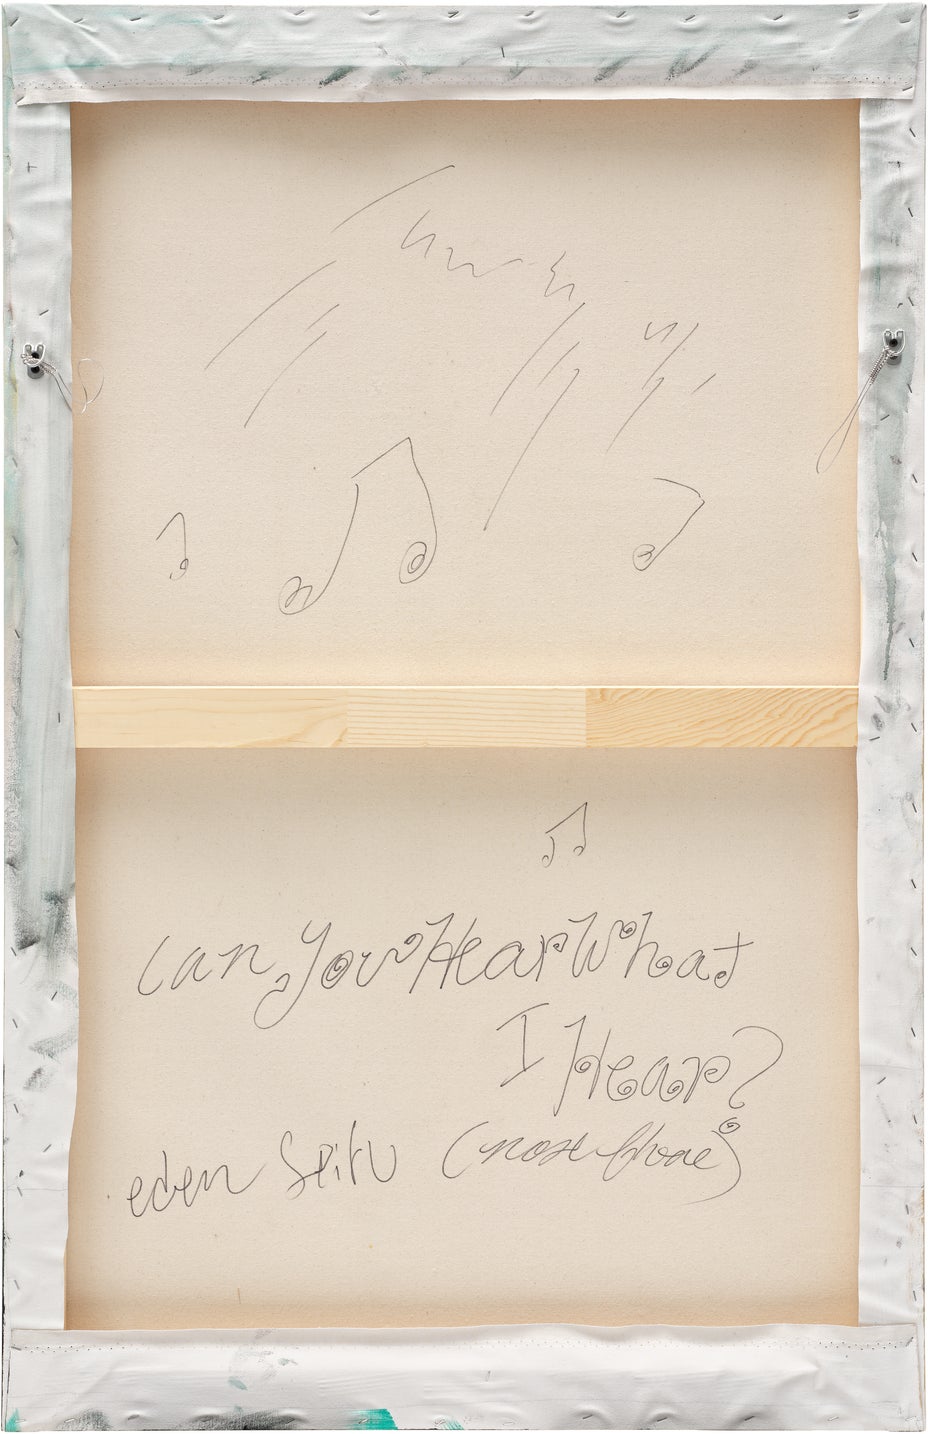 Can You Hear What
I Hear?
eden Seitu (nose phone)